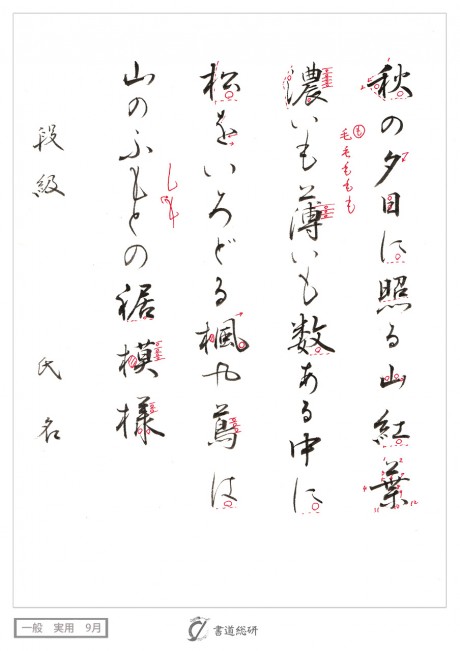 秋の夕日に照る山紅葉
濃いも薄いも数ある中に
松をいろどる楓や蔦は
山のふもとの裾模様
段級　氏名
も
毛もももも
しも
一般　実用　9月
書道総研